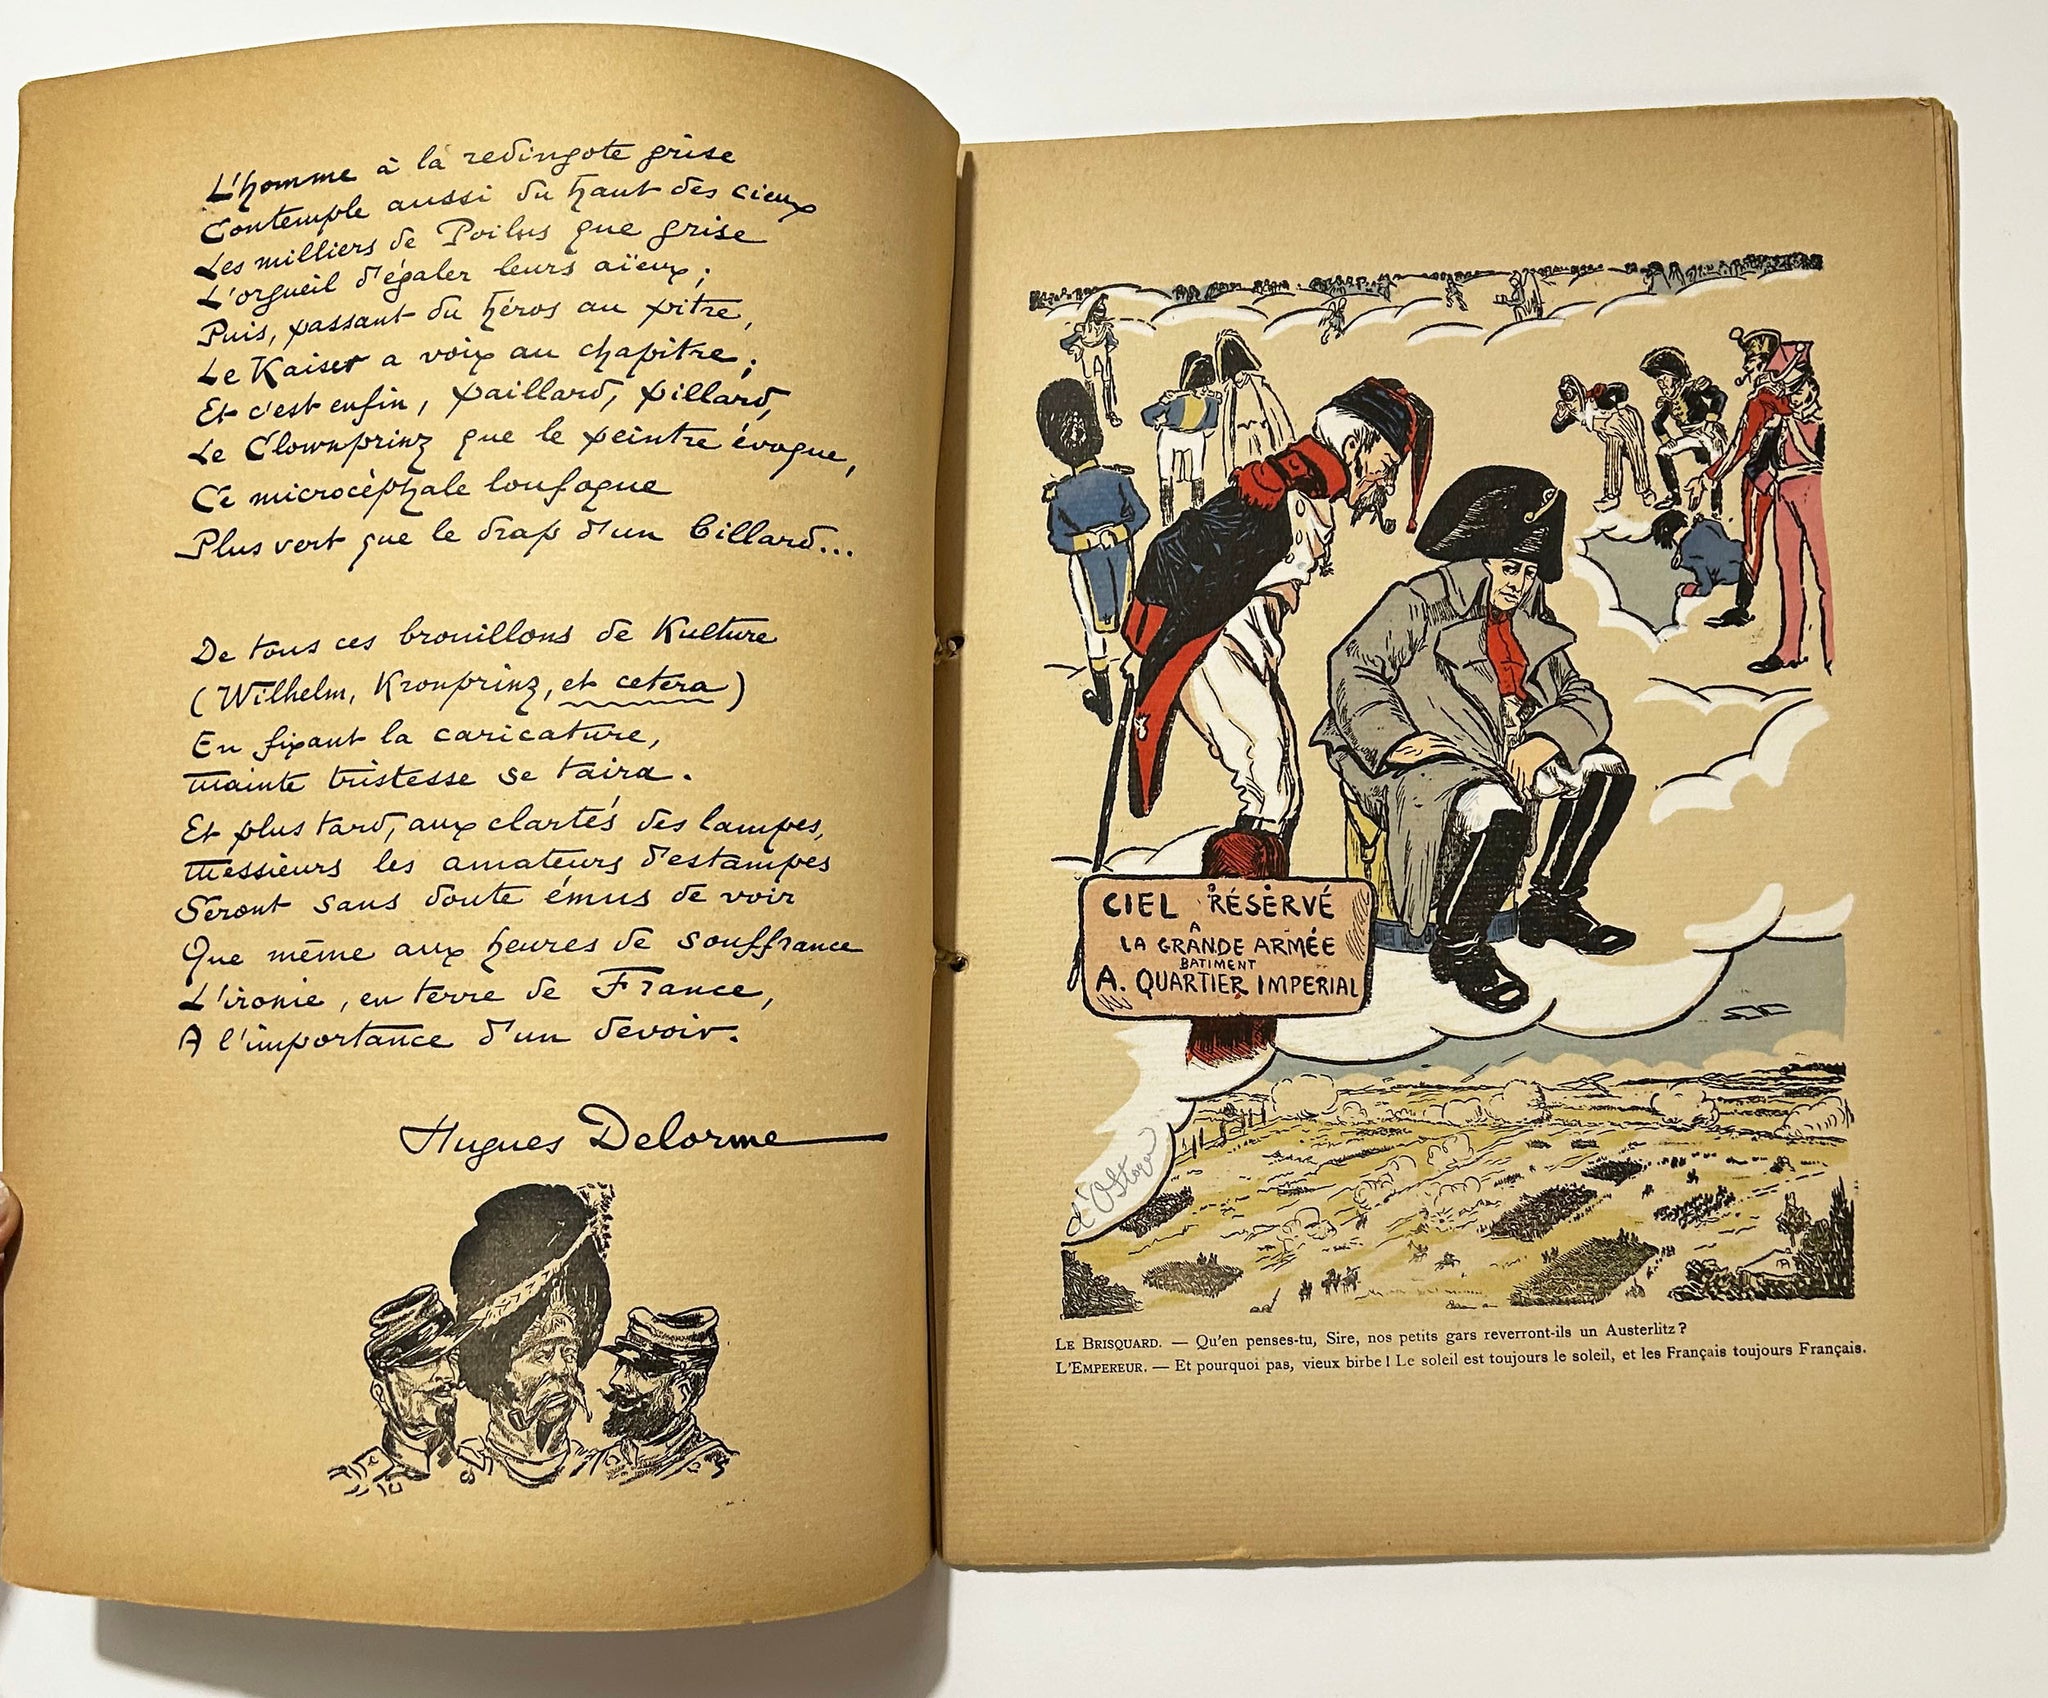 L'homme à la redingote grise
Contemple aussi du haut des cieux
Les milliers de Poilus que grise
L'orgueil d'égaler leurs aïeux;
Puis, passant du héros au pitre,
Le Kaiser a voix au chapitre;
Et c'est enfin, paillard, pillard,
Le Clownprinz que le peintre évoque,
Ce microcéphale loufoque
Plus vert que le drap d'un billard...
De tous ces brouillons de Kulture
(Wilhelm, Kronprinz, et cetera)
En fixant la caricature,
Mainte tristesse se taira.
Et plus tard, aux clartés des lampes,
Messieurs les amateurs d'estampes
Seront sans doute émus de voir
Que même aux heures de souffrance
L'ironie, en terre de France,
A l'importance d'un devoir.
Hugues Delorme
CIEL RÉSERVÉ
A
LA GRANDE ARMÉE
BATIMENT
A. QUARTIER IMPERIAL
d'Ostoya
LE BRISQUARD. — Qu'en penses-tu, Sire, nos petits gars reverront-ils un Austerlitz?
L'EMPEREUR. — Et pourquoi pas, vieux birbe! Le soleil est toujours le soleil, et les Français toujours Français.